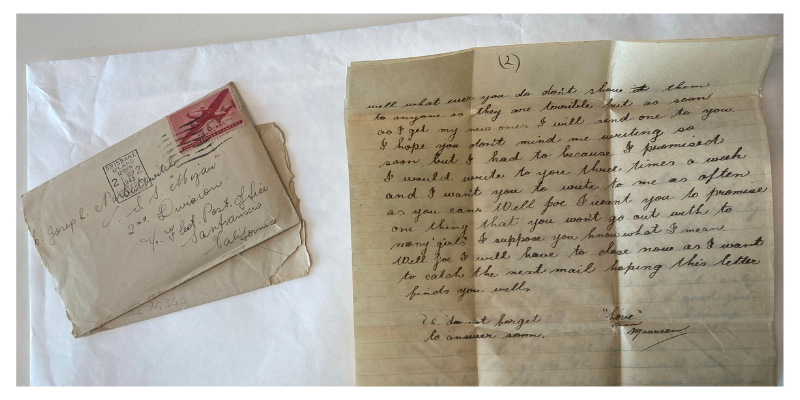 BRISBANE
2
1943
Joseph L.
S. S. "Mozan"
2nd. Division
℅ Fleet Post. Office
Sanfrancisco
California
(2)
well what ever you do don't show them
to anyone as they are terrible but as soon
as I get my new ones I will send one to you.
I hope you don't mind me writing so
soon but I had to because I promised
I would write to you three times a week
and I want you to write to me as often
as you can. Well Joe I want you to promise
one thing that you won't go out with to
many girls I suppose you know what I mean.
Well Joe I will have to close now as I want
to catch the next mail hoping this letter
finds you well.
"Love"
Maureen
P.S. do not forget
to answer soon.